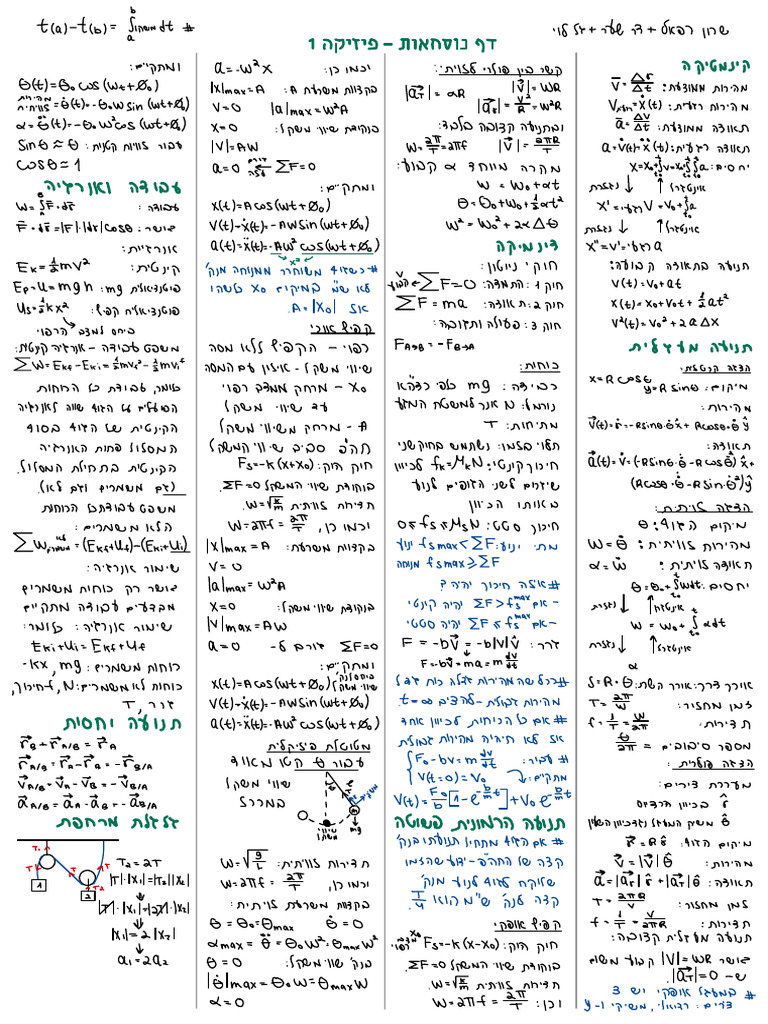 שרון רפאל + דר שער + גל לוי
t(a)-t(b) = ∫ₐᵇ משקולdt #
דף נוסחאות – פיזיקה 1
קינמטיקה
מהירות ממוצעת: V̄ = Δr/Δt
מהירות רגעית: = ẋ(t)
תאוצה ממוצעת: ā = ΔV/Δt
תאוצה רגעית: a = V̇(t) = ẍ(t)
יחסים:
נגזרת ↓ ↑ אינטגרל
נגזרת ↓ ↑ אינטגרל
X'' = V' = a
תנועה בתאוצה קבועה:
V(t) = V₀ + at
X(t) = X₀ + V₀t + ½at²
V²(t) = V₀² + 2aΔX
תנועה מעגלית
הצגה קרטזית:
מיקום: x = R cosθ y = R sinθ
מהירות:
V⃗(t) = ṙ = -R sinθ·θ̇ x̂ + R cosθ·θ̇ ŷ
תאוצה:
a⃗(t) = V̇ = (-R sinθ·θ̈ - R cosθ·θ̇²) x̂ +
(R cosθ·θ̈ - R sinθ·θ̇²) ŷ
הצגה זויתית:
מיקום הגוף: θ
מהירות זוויתית: ω = θ̇
תאוצה זויתית: α = ω̇
יחסים: θ = θ₀ + ∫ωdt
נגזרת ↓ ↑ אינטגרל
ω = ω₀ + ∫α dt
נגזרת ↓ ↑ אינטגרל
α
אורך דרך: אורך קשת: S = R·θ
זמן מחזור: T = 2π/ω
תדירות: f = 1/T = ω/2π
מספר סיבובים = θ/2π
הצגה פולרית:
מערכת צירים:
r̂ בכיוון הרדיוס
θ̂ משיק המעגל נגד כיוון השעון
מיקום הגוף: r⃗ = R r̂
מהירות: V⃗ = |V| θ̂
תאוצה: a⃗ = |a_r| r̂ + |a_t| θ̂
זמן מחזור: T = 2πR/V
תדירות: f = 1/T = V/2πR
תנועה מעגלית קצובה:
כאשר |V| = ωR קבוע משום
ש- |a_t| = 0.
# במעגל אופקי יש 3
צירים: רדיאלי, משיקי ו-y
קשר בין פולרי לזויתי:
|V⃗| = ωR
|a_t| = αR |a_r| = V²/R = ω²R
ובתנועה קצובה בלבד:
ω = 2π/T = 2πf |V| = 2πR/T
מקרה מיוחד α קבוע:
ω = ω₀ + αt
θ = θ₀ + ω₀t + ½αt²
ω² = ω₀² + 2αΔθ
דינמיקה
חוקי ניוטון:
חוק 1: התמדה: ΣF = 0 ⇔ V קבוע
חוק 2: תאוצה: ΣF = ma
חוק 3: פעולה ותגובה:
F_A→B = -F_B→A
כוחות:
כבידה: mg כלפי כדה"א
נורמל: N אנך למשטח המגע
מתיחות: T
תלוי בלמו: נשתמש בחוק שני
חיכוך קינטי: fₖ = μₖN לכיוון
שיגרום לשני הגופים לנוע
באותו הכיוון
חיכוך סטטי: 0 ≤ fs ≤ μsN
מתי ינוע: fs max < ΣF ינוע
fs max ≥ ΣF מנוחה
# איזה חיכוך יהיה?
- אם ΣF > fs^max יהיה קינטי
- אם ΣF ≤ fs^max יהיה סטטי
גרר: F = -bV⃗ = -b|V|V̂
F = -bv = ma = m dv/dt
# ככל שהמהירות גדלה כוח גדל
מהירות גבולית - להציב t = ∞
# אם כל הכוחות לכיוון אחד
אז לא תהיה מהירות גבולית
# עבור: F₀ - bv = m dv/dt
מתקיים: V(t=0) = V₀
V(t) = F₀/b [1 - e^(-b/m t)] + V₀ e^(-b/m t)
תנועה הרמונית פשוטה
# אם הגוף מתחיל תנועתו בנק'
קצה של התה"פ - ידוע שהזמן
שלוקח לגוף לנוע מנק'
קצה לנק' ש"מ הוא T/4
קפיץ אופקי
חוק הוק: Fs = -k(x-x₀)
בנקודת שיווי המשקל ΣF = 0.
תדירות זוויתית ω = √(k/m)
וכן: ω = 2πf = 2π/T
וכמו כן: a = -ω²x
בקצוות משרעת A: |X|max = A
V = 0 |a|max = ω²A
בנקודת שיווי משקל: X = 0
|V| = Aω
a = 0 ⇔ ΣF = 0
ומתקיים:
X(t) = A cos(ωt + φ₀)
V(t) = ẋ(t) = -Aω sin(ωt + φ₀)
a(t) = ẍ(t) = -Aω² cos(ωt + φ₀)
# כשגוף משוחרר ממנוחה מנק'
לא ש"מ במיקום x₀ כלשהו
אז A = |X₀|.
קפיץ אנכי
רפוי - הקפיץ ללא מסה
שיווי משקל - איזון עם המסה
x₀ - מרחק ממצב רפוי
עד שיווי משקל
A - מרחק משיווי משקל
תה"פ סביב שיווי המשקל
חוק הוק: Fs = -k(x+x₀)
בנקודת שיווי המשקל ΣF = 0.
תדירות זוויתית ω = √(k/m)
וכמו כן, ω = 2πf = 2π/T
בקצוות משרעת: |X|max = A
V = 0
|a|max = ω²A
בנקודת שיווי משקל: X = 0
|V|max = Aω
ΣF = 0 גורם ל- a = 0
ומתקיים:
X(t) = A cos(ωt + φ₀)
V(t) = ẋ(t) = -Aω sin(ωt + φ₀)
a(t) = ẍ(t) = -Aω² cos(ωt + φ₀)
מטוטלת פיזיקלית
עבור θ קטן מאוד
שיווי משקל
במרכז
שיווי משקל
mg
תדירות זוויתית: ω = √(g/L)
וכמו כן, ω = 2πf = 2π/T
בקצוות משרעת זויתית:
θ = θ₀ = θmax θ̇ = 0
αmax = θ̈ = θ₀ω² = θmax ω²
בנק' שיווי משקל: θ = 0
|θ̇|max = θ₀ω = θmax ω
α = 0
ומתקיים:
θ(t) = θ₀ cos(ωt + φ₀)
מהירות זוויתית = θ̇(t) = -θ₀ω sin(ωt + φ₀)
α = θ̈(t) = -θ₀ω² cos(ωt + φ₀)
עבור זוויות קטנות: sinθ ≈ θ
cosθ ≈ 1
עבודה ואנרגיה
עבודה: W = ∫ₐᴮ F⃗·dr⃗
כאשר: F⃗·dr⃗ = |F|·|dr| cosθ
אנרגיות:
קינטית: Eₖ = ½mv²
פוטנציאלית mg: Ep = u = mgh
פוטנציאלית קפיץ: Us = ½kx²
ביחס למצב הרפוי
משפט עבודה - אנרגיה קינטית:
ΣW = Ekf - Eki = ½mvf² - ½mvi²
כלומר, עבודת כל הכוחות
הפועלים על הגוף שווה לאנרגיה
הקינטית של הגוף בסוף
המסלול פחות האנרגיה
הקינטית בתחילת המסלול.
(גם משמרים וגם לא).
משפט עבודת כל הכוחות
הלא משמרים:
ΣW לא משמרים = (Ekf + Uf) - (Eki + Ui)
שימור אנרגיה:
כאשר רק כוחות משמרים
מבצעים עבודה מתקיים
שימור אנרגיה: כלומר:
Eki + Ui = Ekf + Uf
כוחות משמרים: mg, kx-
כוחות לא משמרים: N, f-חיכוך,
גרר, T
תנועה יחסית
r⃗_B + r⃗_A/B = r⃗_A
r⃗_A/B = r⃗_A - r⃗_B = -r⃗_B/A
V⃗_A/B = V⃗_A - V⃗_B = -V⃗_B/A
a⃗_A/B = a⃗_A - a⃗_B = -a⃗_B/A
גלגלת מרחפת
T₂ T T T T₂
1 2
T₂ = 2T
|T|·|X₁| = |T₂||X₂|
T·|X₁| = 2T·|X₂|
|X₁| = 2|X₂|
a₁ = 2a₂